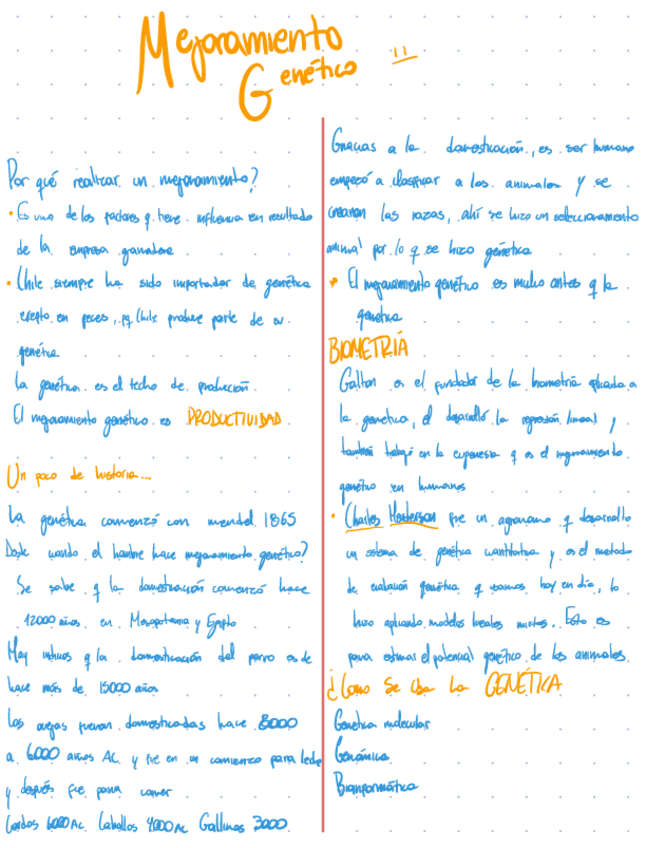 Mejoramiento
Genético
Por qué realizar un mejoramiento?
• Es uno de los factores q tiene influencia en resultado
de la empresa ganadera
• Chile siempre ha sido importador de genética
exepto en peces, pq Chile produce parte de su
genética
La genética es el techo de producción
El mejoramiento genético es PRODUCTIVIDAD
Un poco de historia...
La genética comenzó con mendel 1865
Desde cuando el hombre hace mejoramiento genético?
Se sabe q la domesticación comenzó hace
12000 años en Mesopotamia y Egipto
Hay indicios q la domesticación del perro es de
hace más de 15000 años
Las ovejas fueron domesticadas hace 8000
a 6000 años AC y fue en un comienzo para leche
y después fue para comer
Cerdos 6000 AC Caballos 4000 AC Gallinas 3000
Gracias a la domesticación, es ser humano
empezó a clasificar a los animales y se
crearon las razas, ahí se hizo un seleccionamiento
animal por lo q se hizo genética
• El mejoramiento genético es mucho antes q la
genética
BIOMETRÍA
Galton es el fundador de la biometría aplicada a
la genética, el desarrolló la regresión lineal y
también trabajó en la eugenesia q es el mejoramiento
genético en humanos
• Charles Henderson fue un agronomo q desarrollo
un sistema de genética cuantitativa y es el metodo
de evaluación genética q usamos hoy en día, lo
hizo aplicando modelos lineales mixtos. Esto es
para estimar el potencial genético de los animales.
¿Como Se Usa La GENÉTICA
Genética molecular
Genómica
Bioinformática